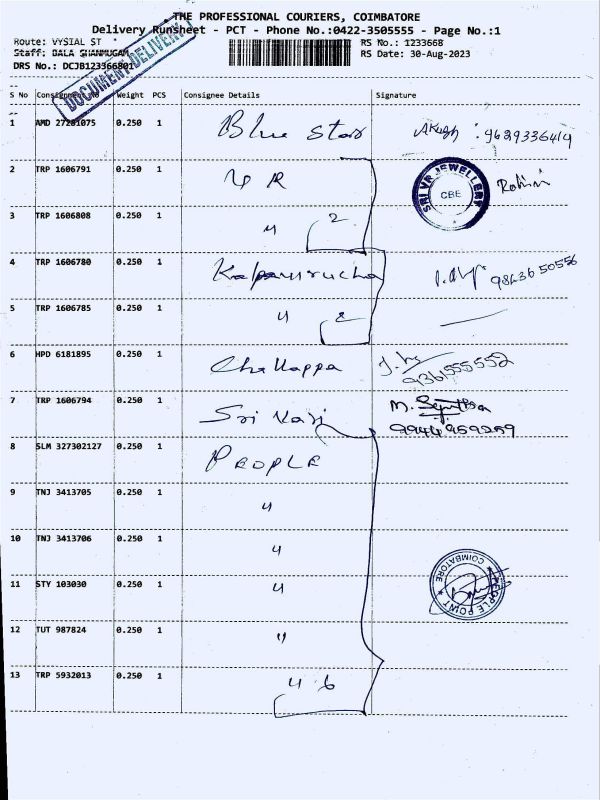 THE PROFESSIONAL COURIERS, COIMBATORE
Delivery Runsheet - PCT - Phone No.:0422-3505555 - Page No.:1
Route: VYSIAL ST RS No.: 1233668
Staff: BALA SHANMUGAM RS Date: 30-Aug-2023
DRS No.: DCJB123366801
DOCUMENT DELIVERY
S No Consignment No Weight PCS Consignee Details Signature
1 AMD 27281075 0.250 1 Blue Star Akash : 9629336414
2 TRP 1606791 0.250 1 V R Rohini
SRI VR JEWELLERY
CBE
3 TRP 1606808 0.250 1 " 2
4 TRP 1606780 0.250 1 9843650556
5 TRP 1606785 0.250 1 " 2
6 HPD 6181895 0.250 1 Chellappa 9361555552
7 TRP 1606794 0.250 1 Sri 9944959259
8 SLM 327302127 0.250 1 PEOPLE
9 TNJ 3413705 0.250 1 "
10 TNJ 3413706 0.250 1 "
11 STY 103030 0.250 1 "
PEOPLE POINT
COIMBATORE
12 TUT 987824 0.250 1 "
13 TRP 5932013 0.250 1 " 6